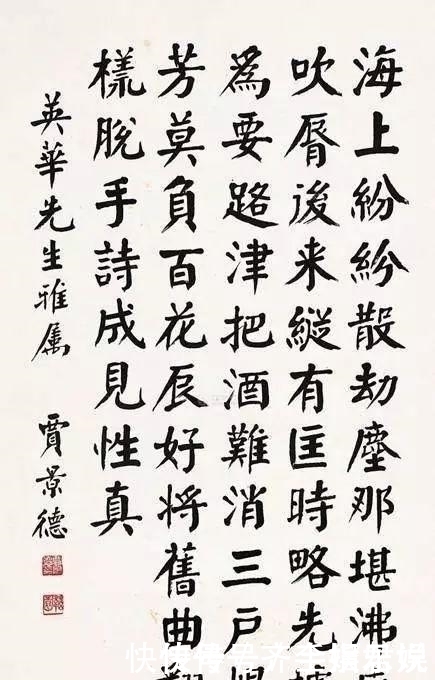 海上紛紛散劫塵那堪沸
吹脣後来縱有匡時略先
為要路津把酒難消三戶
芳莫負百花辰好将舊曲
樣脫手詩成見性真
英華先生雅属 賈景德